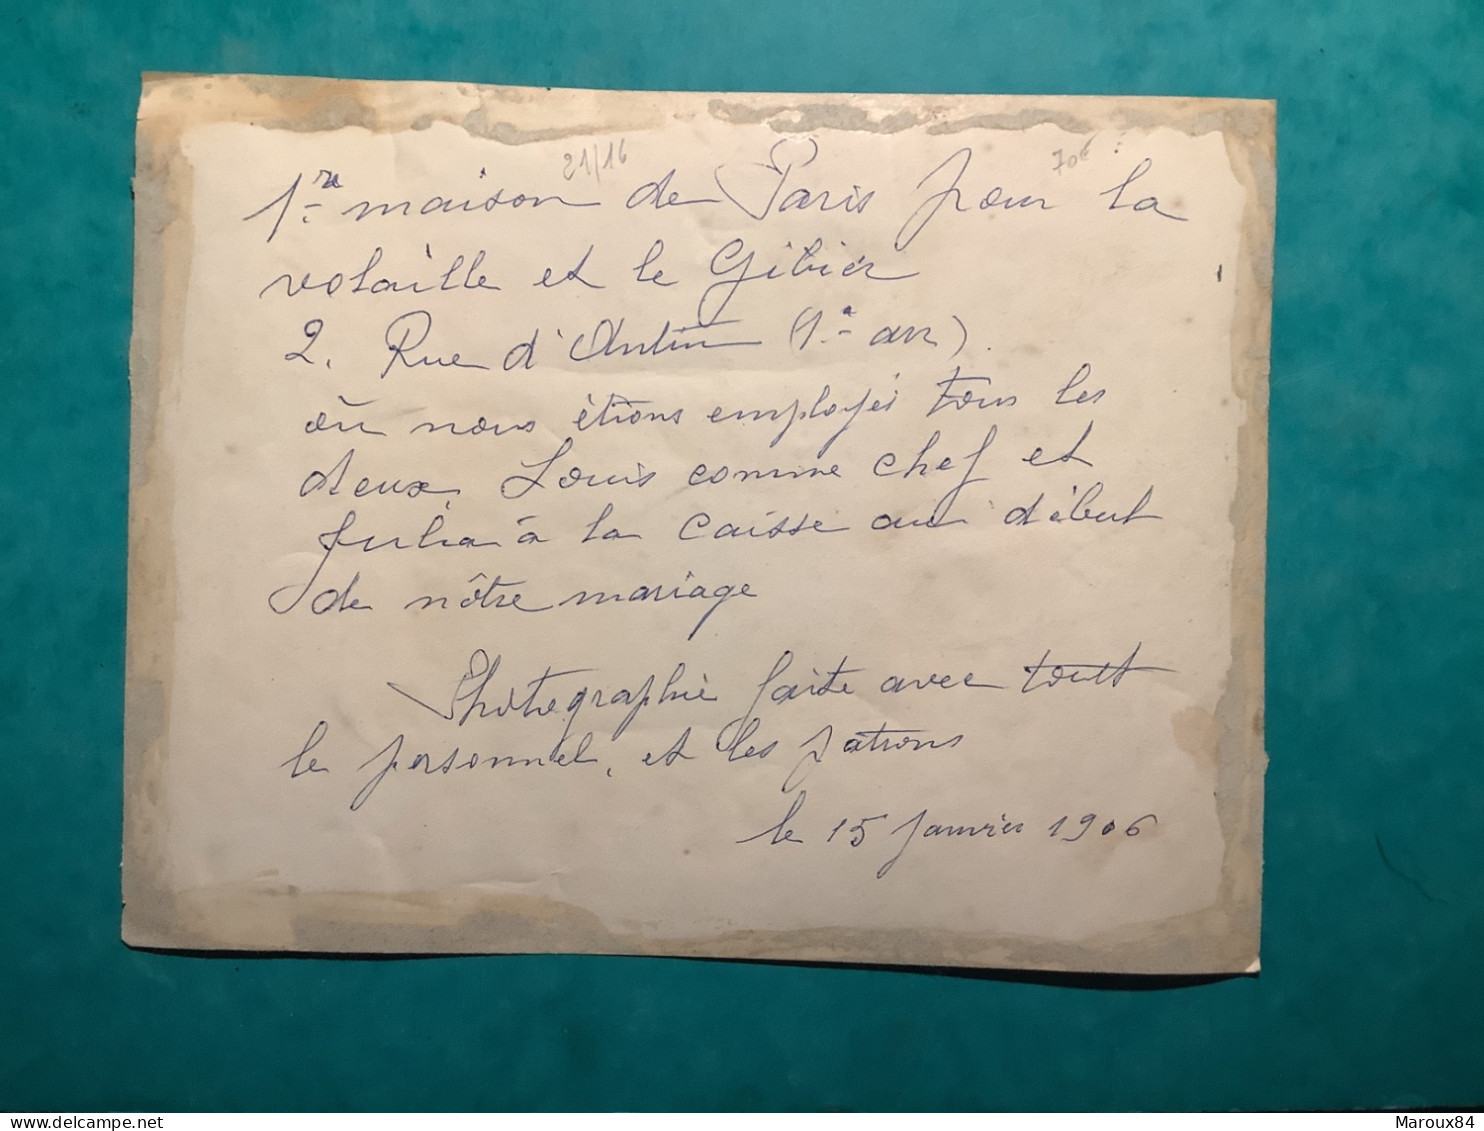 21/16
70€
1re maison de Paris pour la
volaille et le Gibier
2. Rue d'Antin (1e arr).
où nous étions employés tous les
deux. Louis comme chef et
Julia à la caisse au début
de nôtre mariage
Photographie faite avec tout
le personnel, et les patrons
le 15 Janvier 1906
delcampe.net
Maroux84